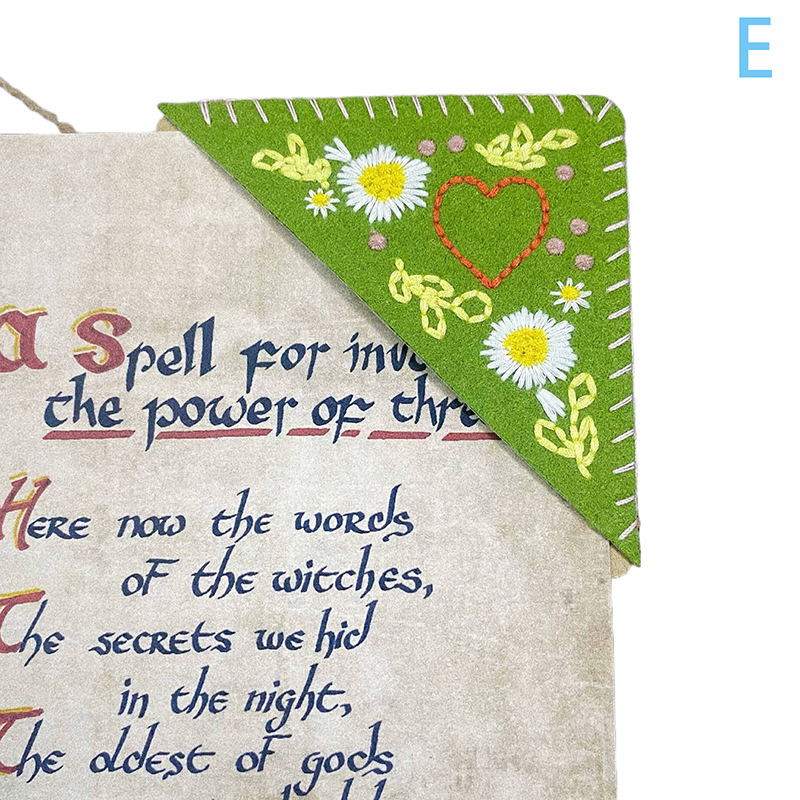 E
a Spell for
the power of
Here now the words
of the witches,
The secrets we hid
in the night,
The oldest of gods